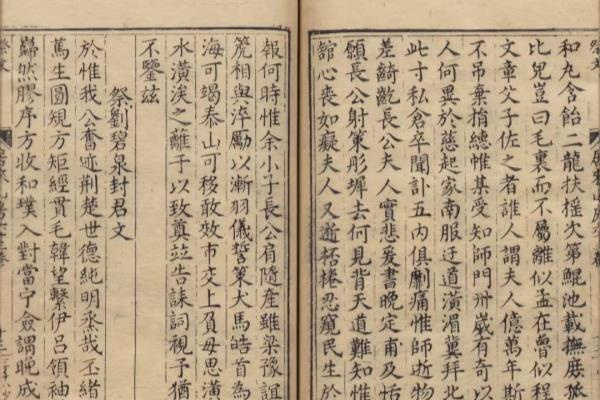 和丸含飴二龍扶搖次第鯤池載撫孱孤
比兒豈曰毛裏而不屬離似孟在魯似程
文章父子佐之者誰人謂夫人億萬年斯
不弔棄捐緫帷某受知師門卅歲有奇以
人何異於慈起家南服迂道潢湄冀拜北
此寸私倉卒聞訃五內俱劘痛惟師逝物
差齮齕長公夫人實悲爰書晚定甫及恬
願長公射策彤墀去何見背天道難知惟
舘心喪如癡夫人又逝桮棬忍窺民生於
報何時惟余小子長公肩隨産雖梁豫誼
箎相與淬勵以漸羽儀誓策犬馬皓首為
海可竭泰山可移敢效市交上負毋思潢
水潢涘之離于以致奠竝告誄詞視予猶
不鑒兹
祭劉碧泉封君文
於惟我公奮迹荆楚世德純明烝哉丕緒
篤生圖䂓方矩經貫毛韓望繫伊吕領袖
巋然膠序方收和璞入對當宁僉謂晚成